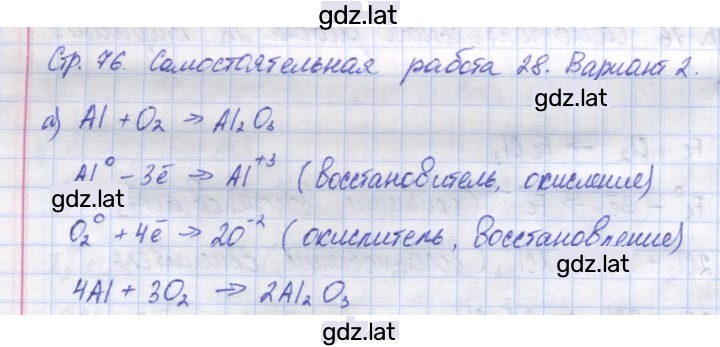 gdz.lat
Стр. 76. Самостоятельная работа 28. Вариант 2.
gdz.lat
а) Al + O₂ → Al₂O₃
Al⁰ – 3ē → Al⁺³ (восстановитель, окисление)
gdz.lat
O₂⁰ + 4ē → 2O⁻² (окислитель, восстановление)
gdz.lat
4Al + 3O₂ → 2Al₂O₃
gdz.lat